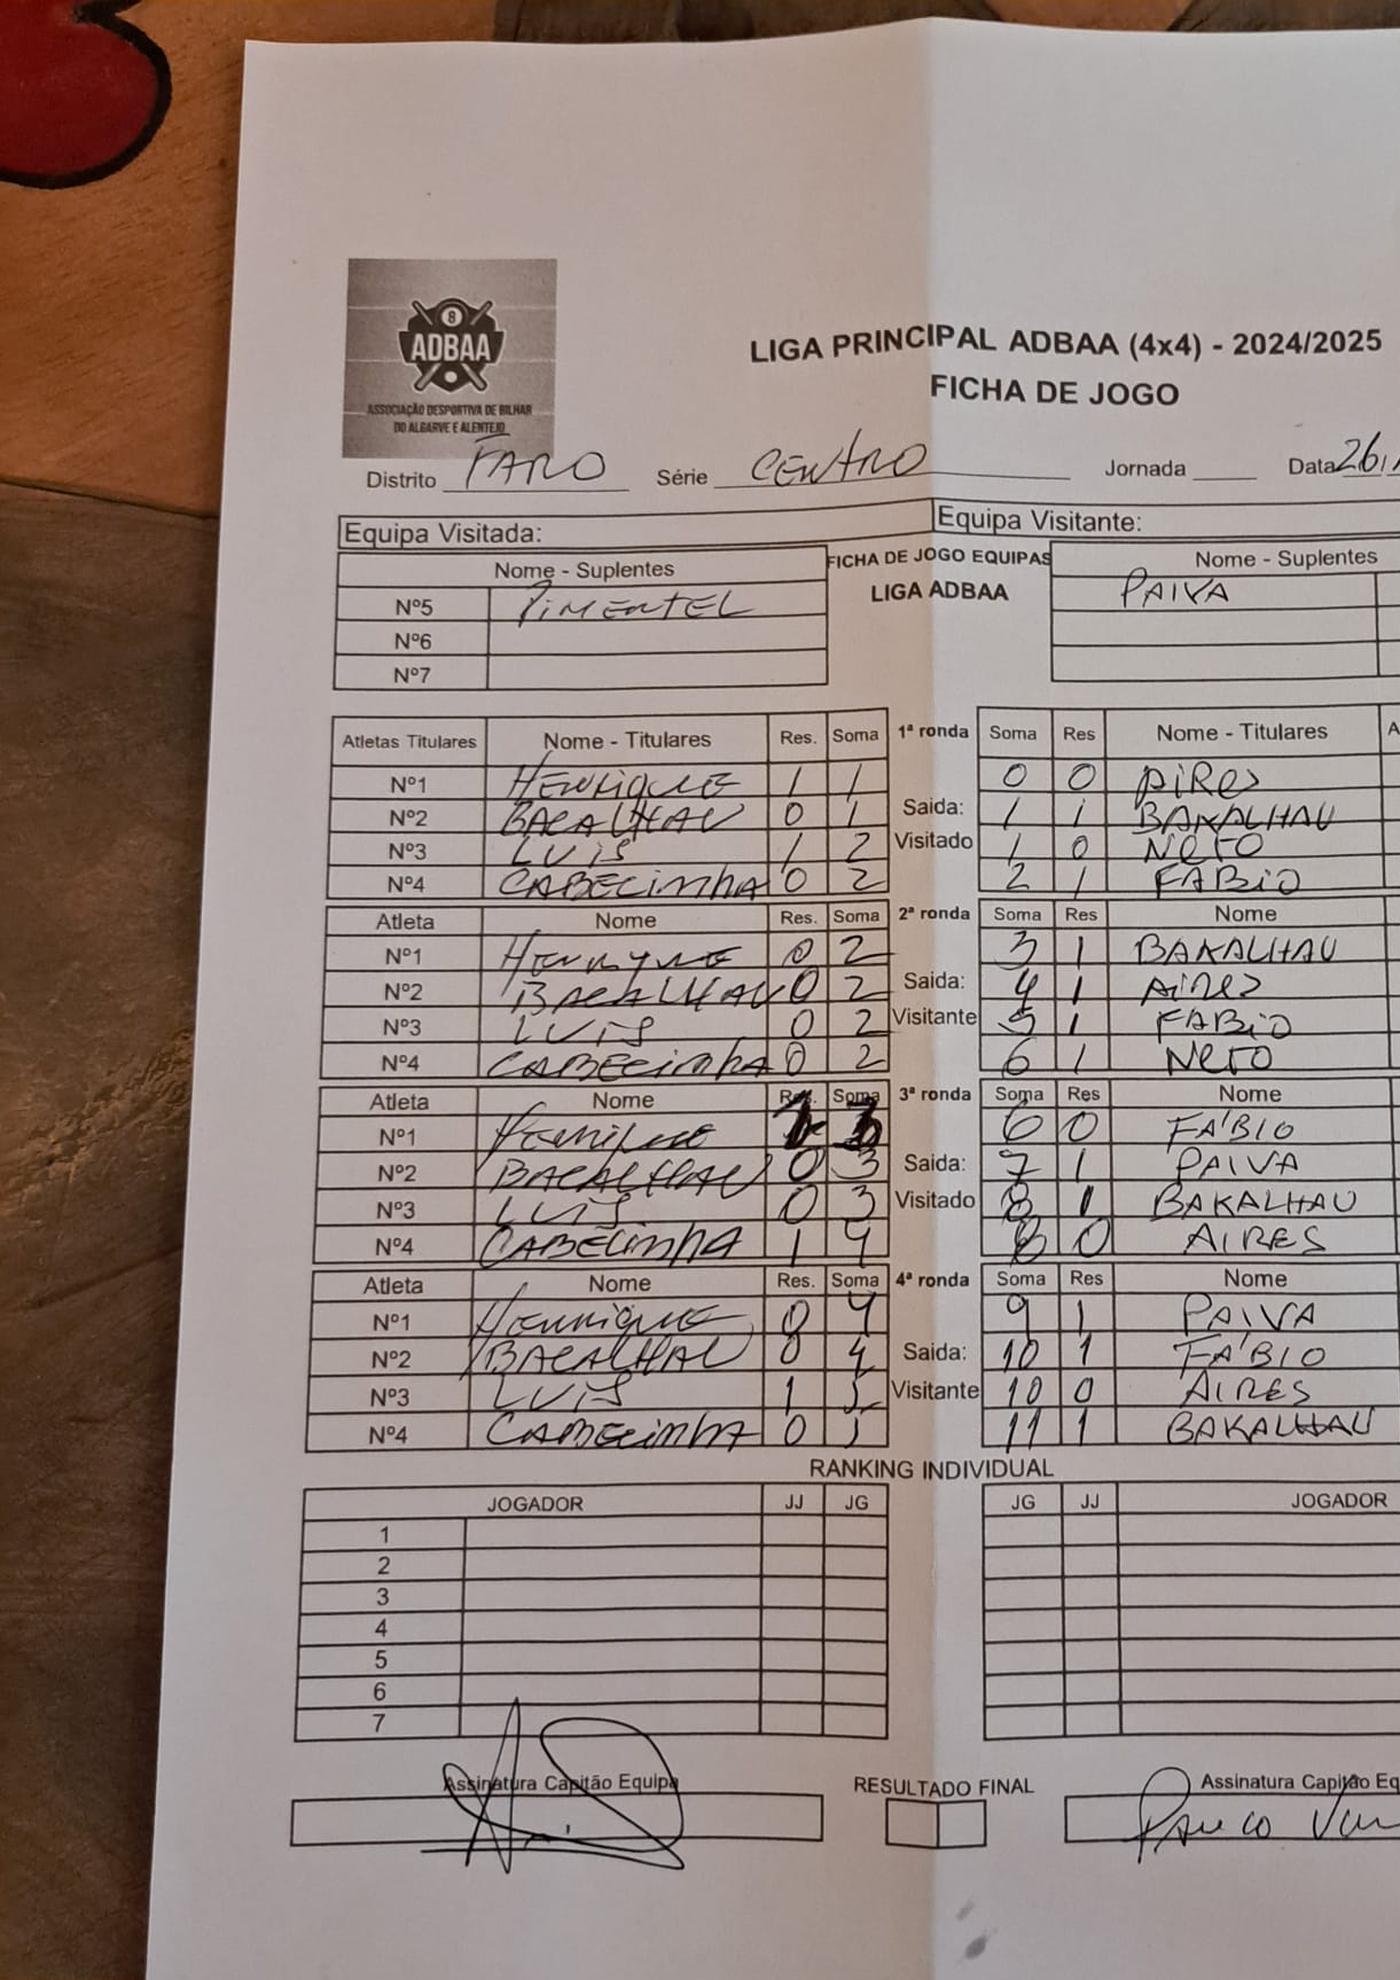 8
ADBAA
ASSOCIAÇÃO DESPORTIVA DE BILHAR
DO ALGARVE E ALENTEJO
LIGA PRINCIPAL ADBAA (4x4) - 2024/2025
FICHA DE JOGO
Distrito FARO Série CENTRO Jornada Data 26/
Equipa Visitada: Equipa Visitante:
Nome - Suplentes FICHA DE JOGO EQUIPAS Nome - Suplentes
Nº5 PIMENTEL LIGA ADBAA PAIVA
Nº6
Nº7
Atletas Titulares Nome - Titulares Res. Soma 1ª ronda Soma Res Nome - Titulares A
Nº1 HENRIQUE 1 1 0 0 AIRES
Nº2 BACALHAU 0 1 Saida: 1 1 BAKALHAU
Nº3 LUIS 1 2 Visitado 1 0 NETO
Nº4 CABECINHA 0 2 2 1 FABIO
Atleta Nome Res. Soma 2ª ronda Soma Res Nome
Nº1 HENRIQUE 0 2 3 1 BAKALHAU
Nº2 BACALHAU 0 2 Saida: 4 1 AIRES
Nº3 LUIS 0 2 Visitante 5 1 FABIO
Nº4 CABECINHA 0 2 6 1 NETO
Atleta Nome Res. Soma 3ª ronda Soma Res Nome
Nº1 Henrique 1 3 6 0 FÁBIO
Nº2 BACALHAU 0 3 Saida: 7 1 PAIVA
Nº3 LUIS 0 3 Visitado 8 1 BAKALHAU
Nº4 CABECINHA 1 4 8 0 AIRES
Atleta Nome Res. Soma 4ª ronda Soma Res Nome
Nº1 HENRIQUE 0 4 9 1 PAIVA
Nº2 BACALHAU 0 4 Saida: 10 1 FÁBIO
Nº3 LUIS 1 5 Visitante 10 0 AIRES
Nº4 CABECINHA 0 5 11 1 BAKALHAU
RANKING INDIVIDUAL
JOGADOR JJ JG JG JJ JOGADOR
1
2
3
4
5
6
7
Assinatura Capitão Equipa RESULTADO FINAL Assinatura Capitão Eq